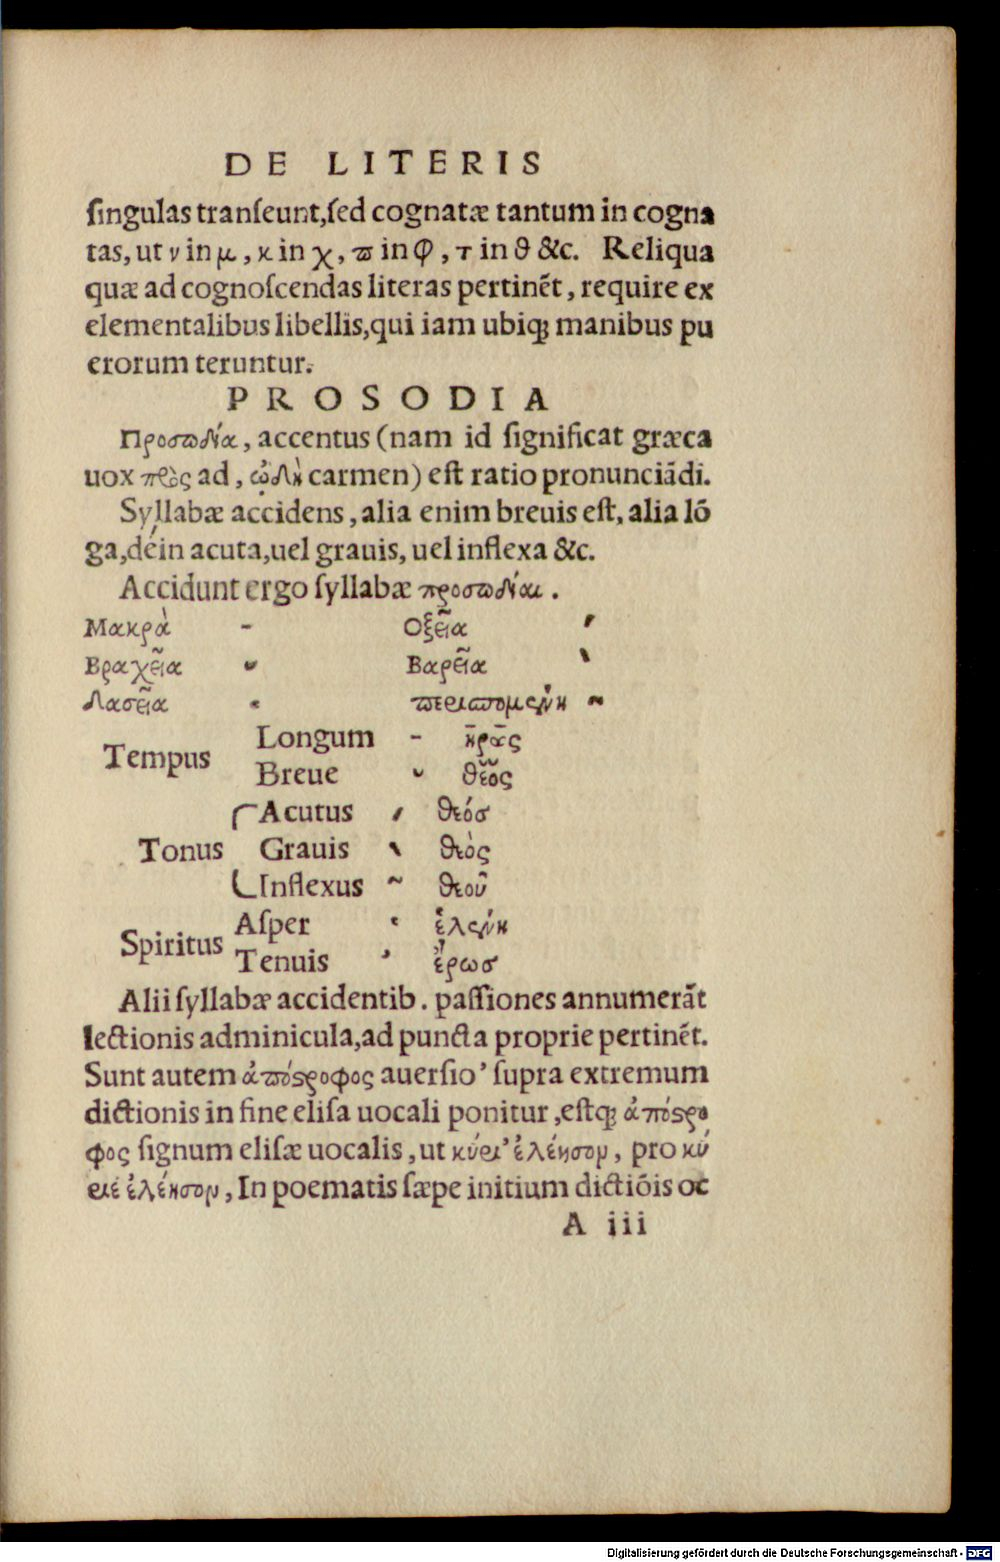 DE LITERIS
ſingulas tranſeunt,ſed cognatæ tantum in cogna
tas, ut ν in μ, κ in χ, ϖ in φ, τ in θ &c. Reliqua
quæ ad cognoſcendas literas pertinẽt, require ex
elementalibus libellis,qui iam ubiqꝫ manibus pu
erorum teruntur.
PROSODIA
Προσωδία, accentus (nam id ſignificat græca
uox πρὸς ad, ᾠδὴ carmen) eſt ratio pronunciãdi.
Syllabæ accidens, alia enim breuis eſt, alia lõ
ga,déin acuta,uel grauis, uel inflexa &c.
Accidunt ergo ſyllabæ προσωδίαι.
Μακρὰ - Οξεῖα ʹ
Βραχεῖα ˘ Βαρεῖα `
Δασεῖα ʽ ϖεριϖομένη ~
Tempus Longum - κρᾱς
Breue ˘ θεὸς
Acutus ʹ θεόσ
Tonus Grauis ` θεὸς
Inflexus ~ θεοῦ
Spiritus Aſper ʽ ἑλένη
Tenuis ʼ ἔρωσ
Alii ſyllabæ accidentib. paſſiones annumerãt
lectionis adminicula,ad puncta proprie pertinẽt.
Sunt autem ἀϖόςροφος auerſio ʼ ſupra extremum
dictionis in fine eliſa uocali ponitur, eſtqꝫ ἀπόςρο
φος ſignum eliſæ uocalis, ut κύριʼ ἐλέησον, pro κύ
ριε ἐλέησον, In poematis ſæpe initium dictiõis oc
A iii
Digitalisierung gefördert durch die Deutsche Forschungsgemeinschaft - DFG